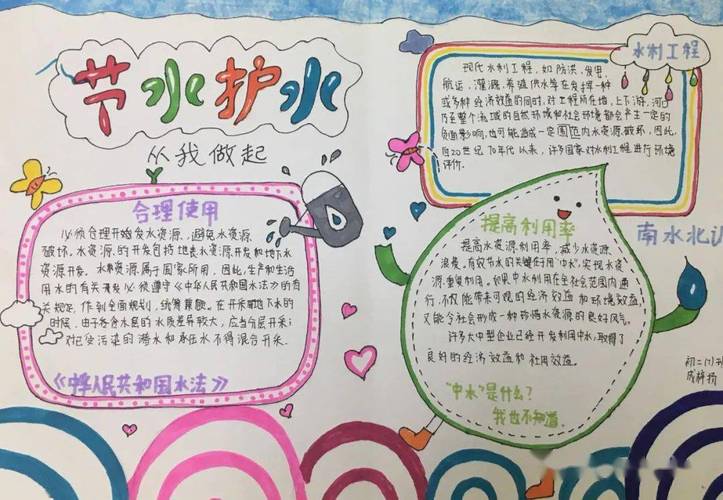 节水护水
从我做起
合理使用
必须合理开发水资源,避免水资源
破坏。水资源的开发包括地表水资源开发和地下水
资源开发。水资源属于国家所用,因此,生产和生活
用水的有关开发必须遵守《中华人民共和国水法》的有
关规定,作到全面规划,统筹兼顾。在开采地下水的
时候,由于各含水层的水质差异较大,应当分层开采;
对已受污染的潜水和承压水不得混合开采.
《中华人民共和国水法》
水利工程
现代水利工程,如防洪、发电、
航运、灌溉、养殖供水等在发挥一种
或多种经济效益的同时,对工程所在地、上下游、河口
乃至整个流域的自然环境和社会环境都会产生一定的
负面影响,也可能造成一定范围内水资源破坏,因此,
自20世纪70年代以来,许多国家对水利工程进行环境
评价.
提高利用率
提高水资源利用率,减少水资源
浪费。有效节水的关键在于用"中水",实现水资
源重复利用。如果中水利用在全社会范围内通
行,不仅能带来可观的经济效益和环境效益,
又能令社会形成一种珍惜水资源的良好风气。
许多大中型企业已经开发利用中水,取得了
良好的经济效益和社用效益.
"中水"是什么?
我也不知道.
南水北
初二(7)